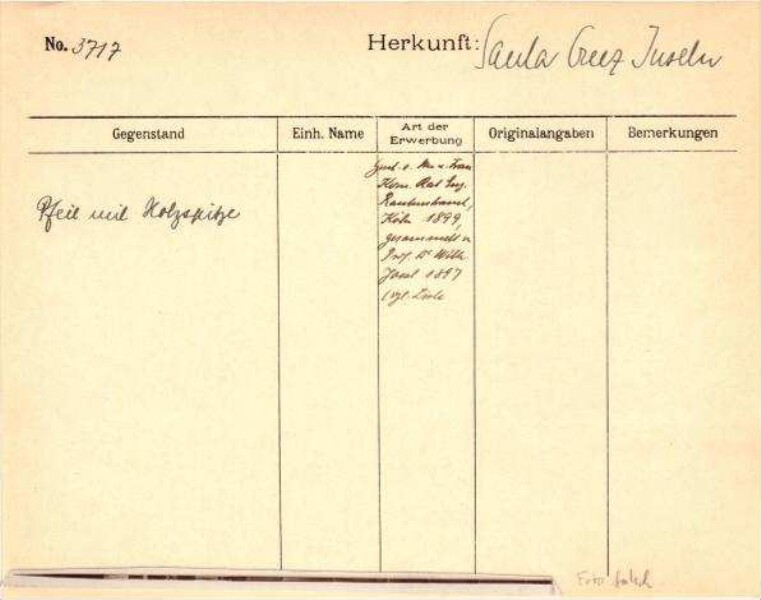 No. 3717 Herkunft: Santa Cruz Inseln
Gegenstand Einh. Name Art der Erwerbung Originalangaben Bemerkungen
Pfeil mit Holzspitze
u. Frau
Kom. Rat Eug.
Rautenstrauch,
Köln 1899,
gesammelt v.
Prof. Dr Wilh.
Joest 1897
(vgl. Liste
Foto falsch